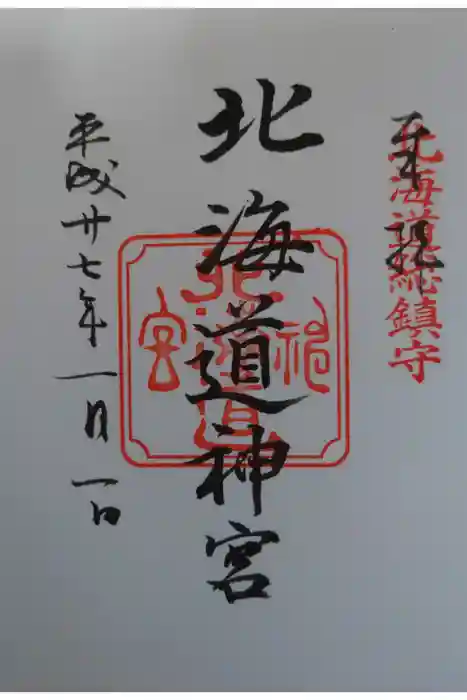 奉拝
北海道総鎮守
北海道神宮
平成廿七年一月一日